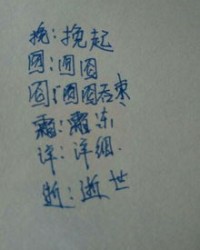 挽:挽起
囫:囫囵
囵:囫囵吞枣
霜:霜冻
详:详细
逝:逝世